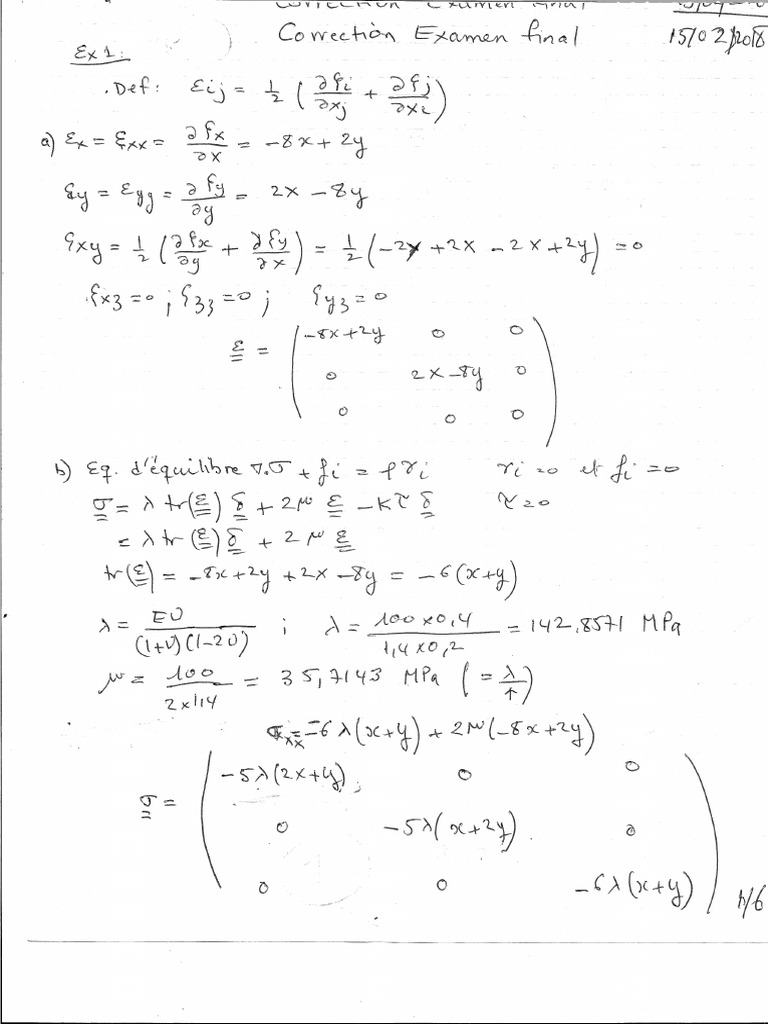 Correction Examen final
Correction Examen final 15/02/2018
Ex 1:
. Def: εij = 1/2 ( ∂ξi/∂xj + ∂ξj/∂xi )
a) εx = εxx = ∂ξx/∂x = -8x + 2y
εy = εyy = ∂ξy/∂y = 2x - 8y
εxy = 1/2 ( ∂ξx/∂y + ∂ξy/∂x ) = 1/2 ( -2y + 2x - 2x + 2y ) = 0
εx3 = 0 ; ε33 = 0 ; εy3 = 0
ε = ( -8x+2y 0 0
0 2x-8y 0
0 0 0 )
b) Eq. d'équilibre ∇.σ + fi = ργi γi = 0 et fi = 0
σ = λ tr(ε) δ + 2μ ε - Kτ δ τ = 0
= λ tr(ε) δ + 2μ ε
tr(ε) = -8x + 2y + 2x - 8y = -6(x+y)
λ = Eυ/((1+υ)(1-2υ)) ; λ = 100×0,4/(1,4×0,2) = 142,8571 MPa
μ = 100/(2×1,4) = 35,7143 MPa ( = λ/4 )
σxx = -6λ(x+y) + 2μ(-8x+2y)
σ = ( -5λ(2x+y) 0 0
0 -5λ(x+2y) 0
0 0 -6λ(x+y) )